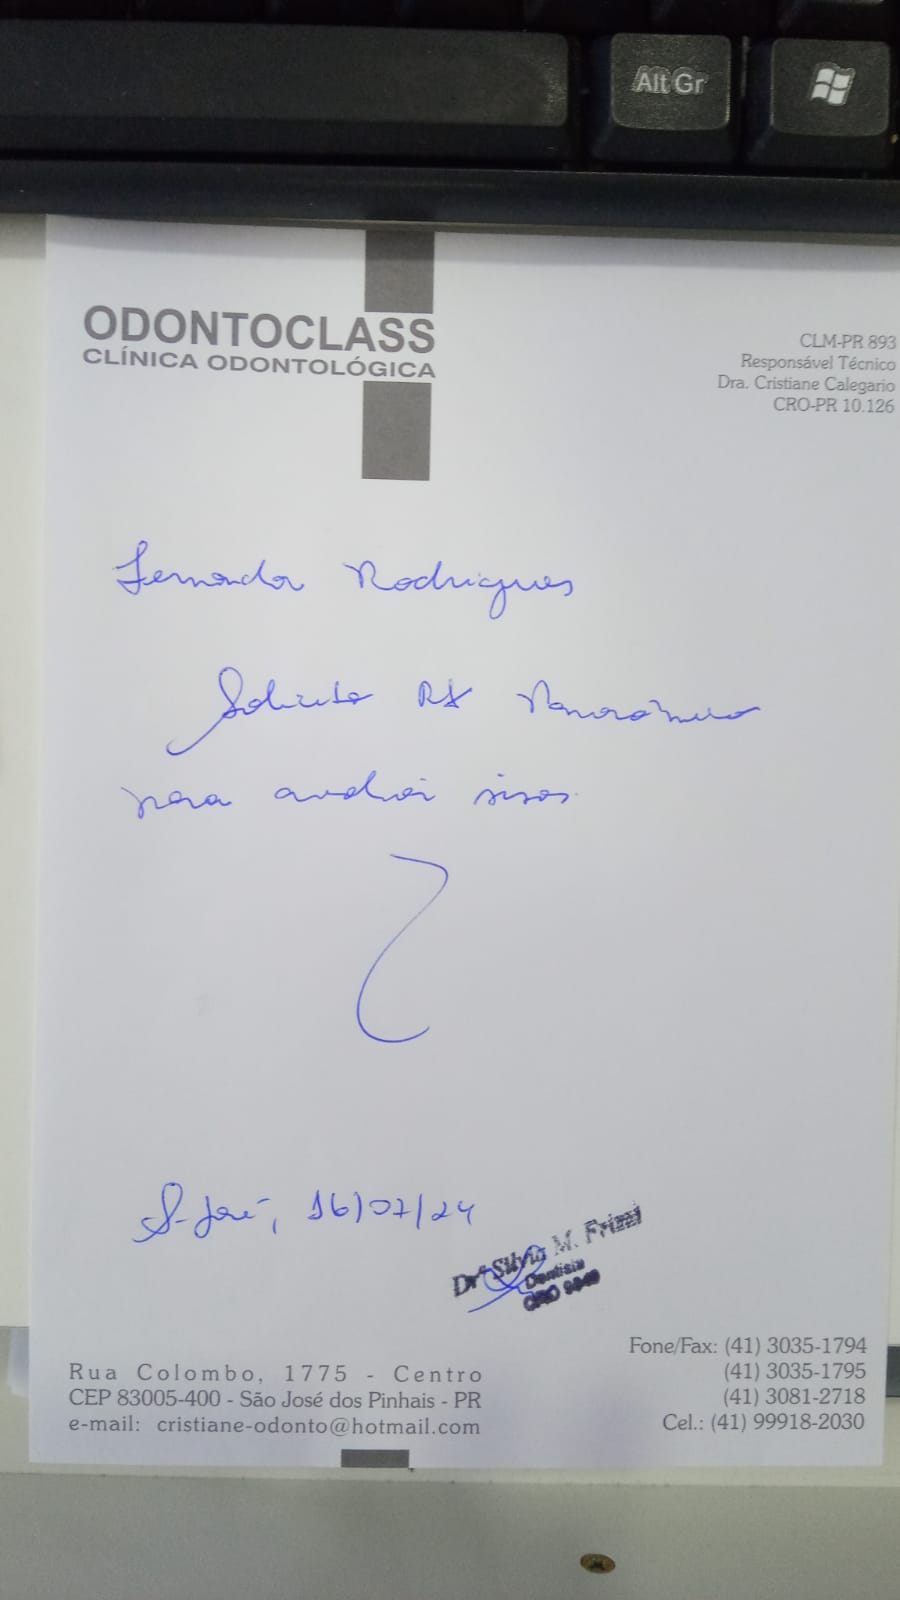 Alt Gr
ODONTOCLASS
CLÍNICA ODONTOLÓGICA
CLM-PR 893
Responsável Técnico
Dra. Cristiane Calegario
CRO-PR 10.126
Fernanda Rodrigues
Solicito RX Panorâmico
para avaliar sisos.
S. José, 16/07/24
Drª Silvia M. Frizzi
Dentista
CRO
Rua Colombo, 1775 - Centro
CEP 83005-400 - São José dos Pinhais - PR
e-mail: cristiane-odonto@hotmail.com
Fone/Fax: (41) 3035-1794
(41) 3035-1795
(41) 3081-2718
Cel.: (41) 99918-2030